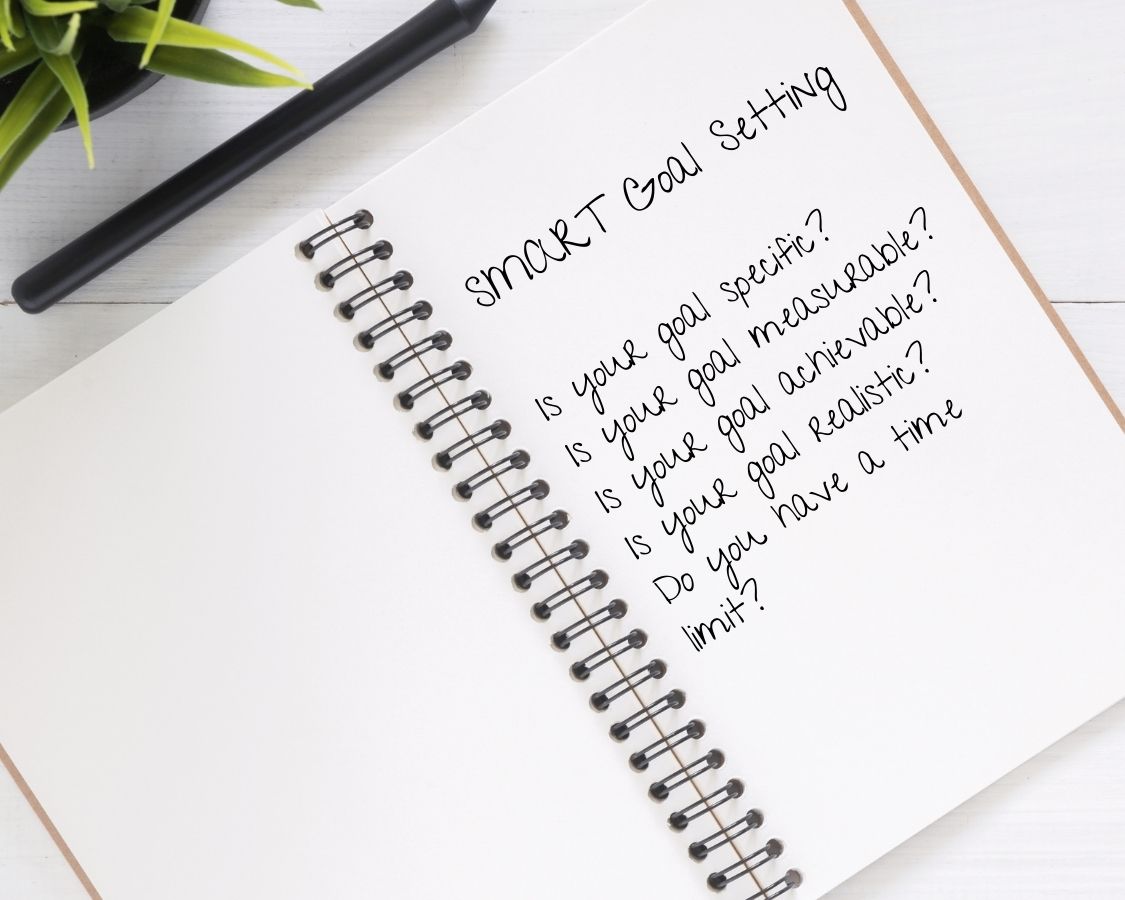 SMART Goal Setting
Is your goal specific?
Is your goal measurable?
Is your goal achievable?
Is your goal realistic?
Do you have a time
limit?